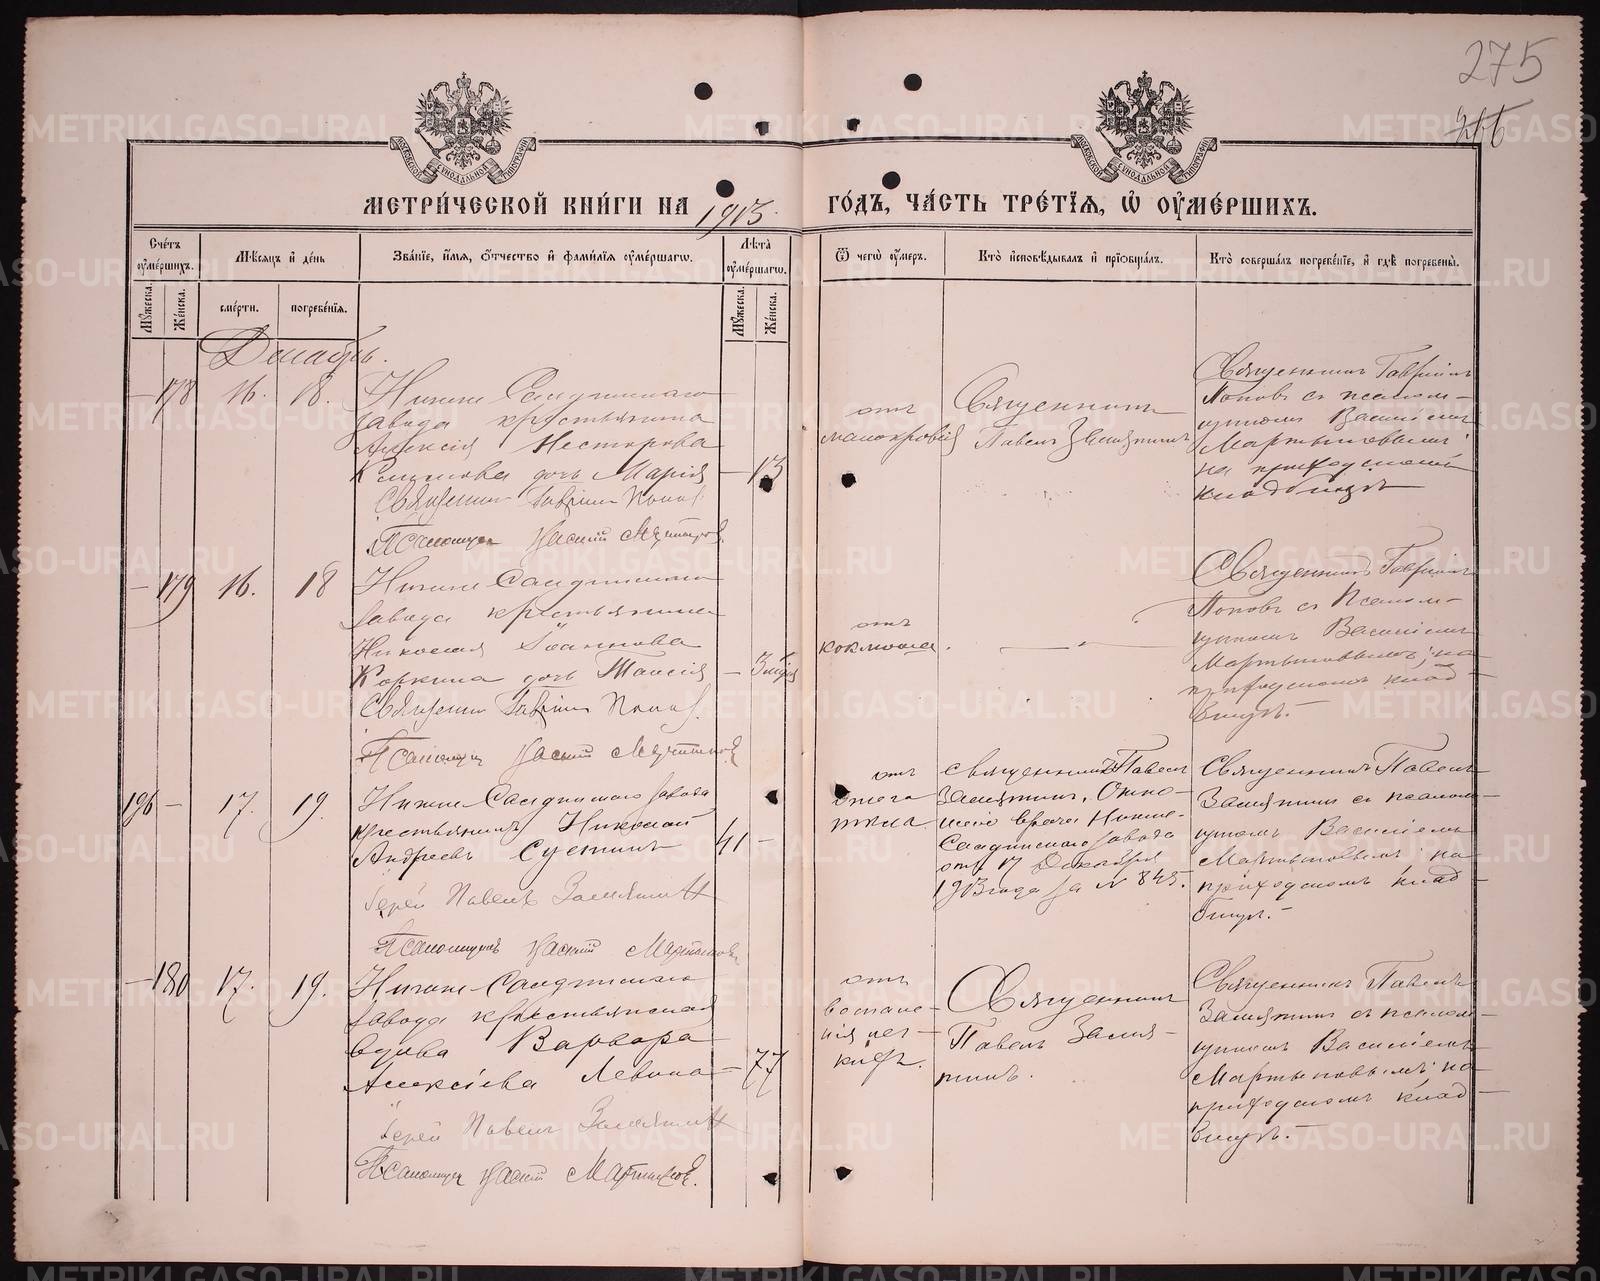 275
МОСКОВСКОЙ СѴНОДАЛЬНОЙ ТИПОГРАФІИ
МОСКОВСКОЙ СѴНОДАЛЬНОЙ ТИПОГРАФІИ
МЕТРИ́ЧЕСКОЙ КНИ́ГИ НА 1913. ГО́ДЪ, ЧА́СТЬ ТРЕ́ТІЯ, Ѿ ОУМЕ́РШИХЪ.
Сче́тъ оумершихъ.
Мѣсяцъ и день
Зва́ніе, и́мя, о́тчество и фами́лія оуме́ршагѡ.
Лѣта оуме́ршагѡ.
Ѿ чегѡ оу́меръ.
Кто̀ исповѣ́дывалъ и прїѡбща́лъ.
Кто̀ соверша́лъ погребе́ніе, и гдѣ̀ погребены̀.
Мужеска.
Же́нска.
сме́рти.
погребе́нія.
Мужеска.
Же́нска.
Декабрь.
— 178
16.
18.
Нижне-Салдинскаго
завода крестьянина
Алексія Нестерова
дочь Марія
— 13
Священникъ Гавріилъ Попов
Псаломщик Василій Мартынов
отъ
малокровія
Священникъ
Павелъ Замятинъ
Священникъ Гавріилъ
Поповъ съ псалом-
щикомъ Василіемъ
Мартыновымъ;
на приходскомъ
кладбищѣ
— 179
16.
18
Нижне-Салдинскаго
завода крестьянина
Николая Іоаннова
Коркина дочь Таисія
—
Священник Гавріил Попов.
Псаломщик Василій Мартынов
отъ
коклюша.
— " —
Священникъ Гавріилъ
Поповъ съ Псалом-
щикомъ Василіемъ
Мартыновымъ; на
приходскомъ клад-
бищѣ.—
196 —
17.
19.
Нижне-Салдинскаго завода
крестьянинъ Николай
Андреевъ
41 —
Іерей Павелъ Замятин
Псаломщикъ Василій Мартынов
отъ
ожога
тѣла
священникъ Павелъ
Замятин. Отно-
шеніе врача Нижне-
Салдинскаго завода
отъ 17 Декабря
1913 года за № 845.
Священникъ Павелъ
Замятинъ съ псалом-
щикомъ Василіемъ
Мартыновымъ; на
приходскомъ клад-
бищѣ.—
— 180
17.
19.
Нижне-Салдинскаго
завода крестьянская
вдова Варвара
Алексіева Левина
— 77
Іерей Павелъ Замятин
Псаломщик Василій Мартынов.
отъ
воспале-
нія лег-
кихъ.
Священникъ
Павелъ Замя-
тинъ.
Священникъ Павелъ
Замятинъ съ псалом-
щикомъ Василіемъ
Мартыновымъ; на
приходскомъ клад-
бищѣ.—
METRIKI.GASO-URAL.RU